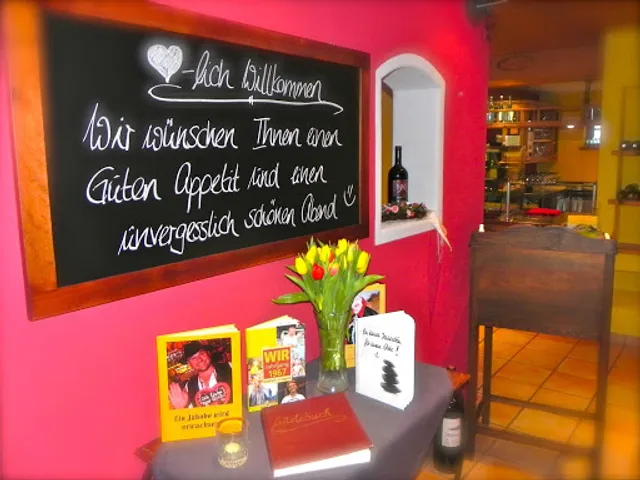 -lich Willkommen
Wir wünschen Ihnen einen
Guten Appetit und einen
unvergesslich schönen Abend
WIR
1967
Gästebuch